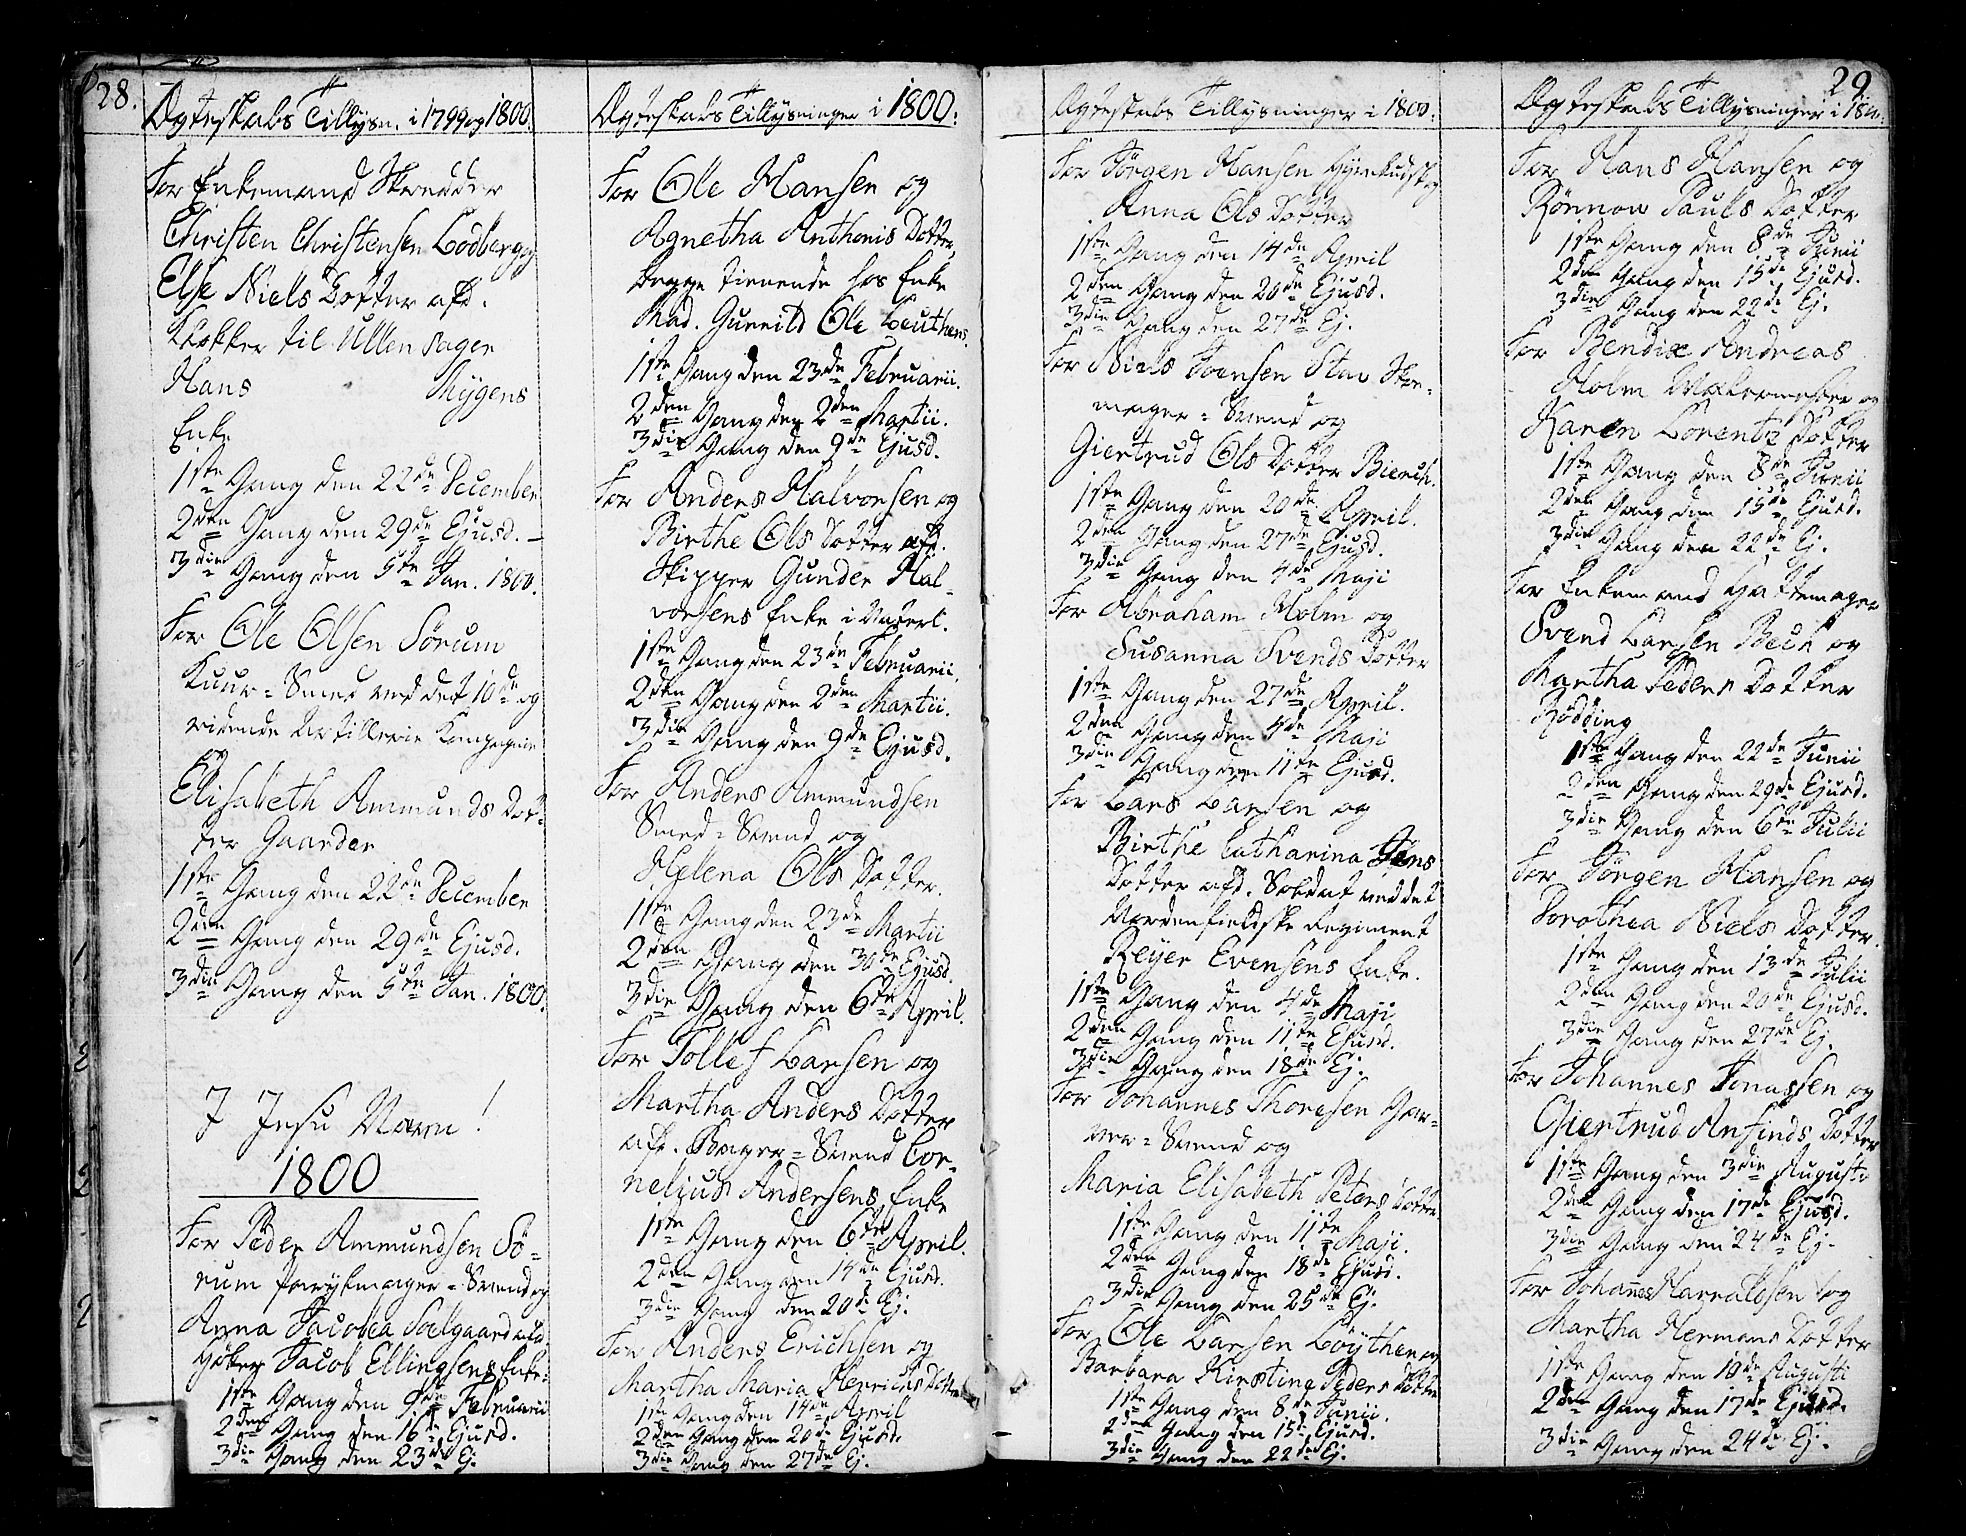 28.
Ægteskabs Tillysn. i 1799 og 1800.
For Enkemand Skredder
Christen Christensen Lodberg og
Else Niels Dotter afd.
Klokker til Ullensager
Hans Mygens
Enke
1ste Gang den 22de December
2den Gang den 29de Ejusd.
3die Gang den 5te Jan. 1800.
For Ole Olsen Sørum
Kuur-Smed ved det 10de og
ridende Artillerie Kompagnie
og
Elisabeth Ammunds Dot-
ter Gaarder
1ste Gang den 22de December
2den Gang den 29de Ejusd.
3die Gang den 5te Jan. 1800.
I Jesu Navn!
1800
For Peder Ammundsen Sø-
rum Parykmager-Svend og
Anna Jacobea Solgaard afd.
Høker Jacob Ellingsens Enke.
1ste Gang den 9de Februarii
2den Gang den 16de Ejusd.
3die Gang den 23de Ej.
Ægteskabs Tillysninger i 1800.
For Ole Hansen og
Agnetha Anthonis Dotter,
begge tienende hos Enke
Mad. Gunnild Ole Leuthens.
1ste Gang den 23de Februarii.
2den Gang den 2den Martii.
3die Gang den 9de Ejusd.
For Anders Halvorsen og
Birthe Ols Dotter afd.
Skipper Gunder Hal-
vorsens Enke i Vaterl.
1ste Gang den 23de Februarii.
2den Gang den 2den Martii.
3die Gang den 9de Ejusd.
For Anders Ammundsen
Smed-Svend og
Helena Ols Dotter.
1ste Gang den 23de Martii
2den Gang den 30de Ejusd.
3die Gang den 6te April.
For Tollef Larsen og
Martha Anders Dotter
afd. Bager-Svend Cor-
neljus Andersens Enke
1ste Gang den 6te April.
2den Gang den 14de Ejusd.
3die Gang den 20de Ej.
For Anders Erichsen og
Martha Maria Henrichs Dotter
1ste Gang den 14de April
2den Gang den 20de Ejusd.
3die Gang den 27de Ej.
Ægteskabs Tillysninger i 1800.
For Jørgen Hansen og
Anna Ols Dotter
1ste Gang den 14de April
2den Gang den 20de Ejusd.
3die Gang den 27de Ej.
For Niels Svensen Stav Skoe-
mager-Svend og
Giertrud Ols Dotter Bierch.
1ste Gang den 20de April.
2den Gang den 27de Ejusd.
3die Gang den 4de Maji
For Abraham Holm og
Susanna Svends Dotter
1ste Gang den 27de April.
2den Gang den 4de Maji
3die Gang den 11te Ejusd.
For Lars Larsen og
Birthe Catharina Jens
Dotter afd. Soldat ved det
Nordenfieldske Regiment
Reyer Evensens Enke.
1ste Gang den 4de Maji
2den Gang den 11te Ejusd.
3die Gang den 18de Ej.
For Johannes Thoresen Gar-
ver-Svend og
Maria Elisabeth Peters Dotter
1ste Gang den 11te Maji.
2den Gang den 18de Ejusd.
3die Gang den 25de Ej.
For Ole Larsen Løythen og
Barbara Kirstine Peders Dotter
1ste Gang den 8de Junii.
2den Gang den 15de Ejusd.
3die Gang den 22de Ej.
29
Ægteskabs Tillysninger i 180
For Hans Hansen og
Rønnow Pauls Dotter
1ste Gang den 8de Junii
2den Gang den 15de Ejusd.
3die Gang den 22de Ej.
For Bendix Andreas
Holm og
Karen Lorentz Dotter
1ste Gang den 8de Junii
2den Gang den 15de Ejusd.
3die Gang den 22de Ej.
For Enkemand Hattemager
Svend Larsen Bech og
Martha Peders Dotter
Rødding
1ste Gang den 22de Junii
2den Gang den 29de Ejusd.
3die Gang den 6te Julii
For Jørgen Hansen og
Dorothea Niels Dotter.
1ste Gang den 13de Julii
2den Gang den 20de Ejusd.
3die Gang den 27de Ej.
For Johannes Jonassen og
Giertrud Ansinds Dotter
1ste Gang den 3die Augusti
2den Gang den 17de Ejusd.
3die Gang den 24de Ej.
For Johannes Harraldsen og
Martha Hermans Dotter
1ste Gang den 10de Augusti
2den Gang den 17de Ejusd.
3die Gang den 24de Ej.